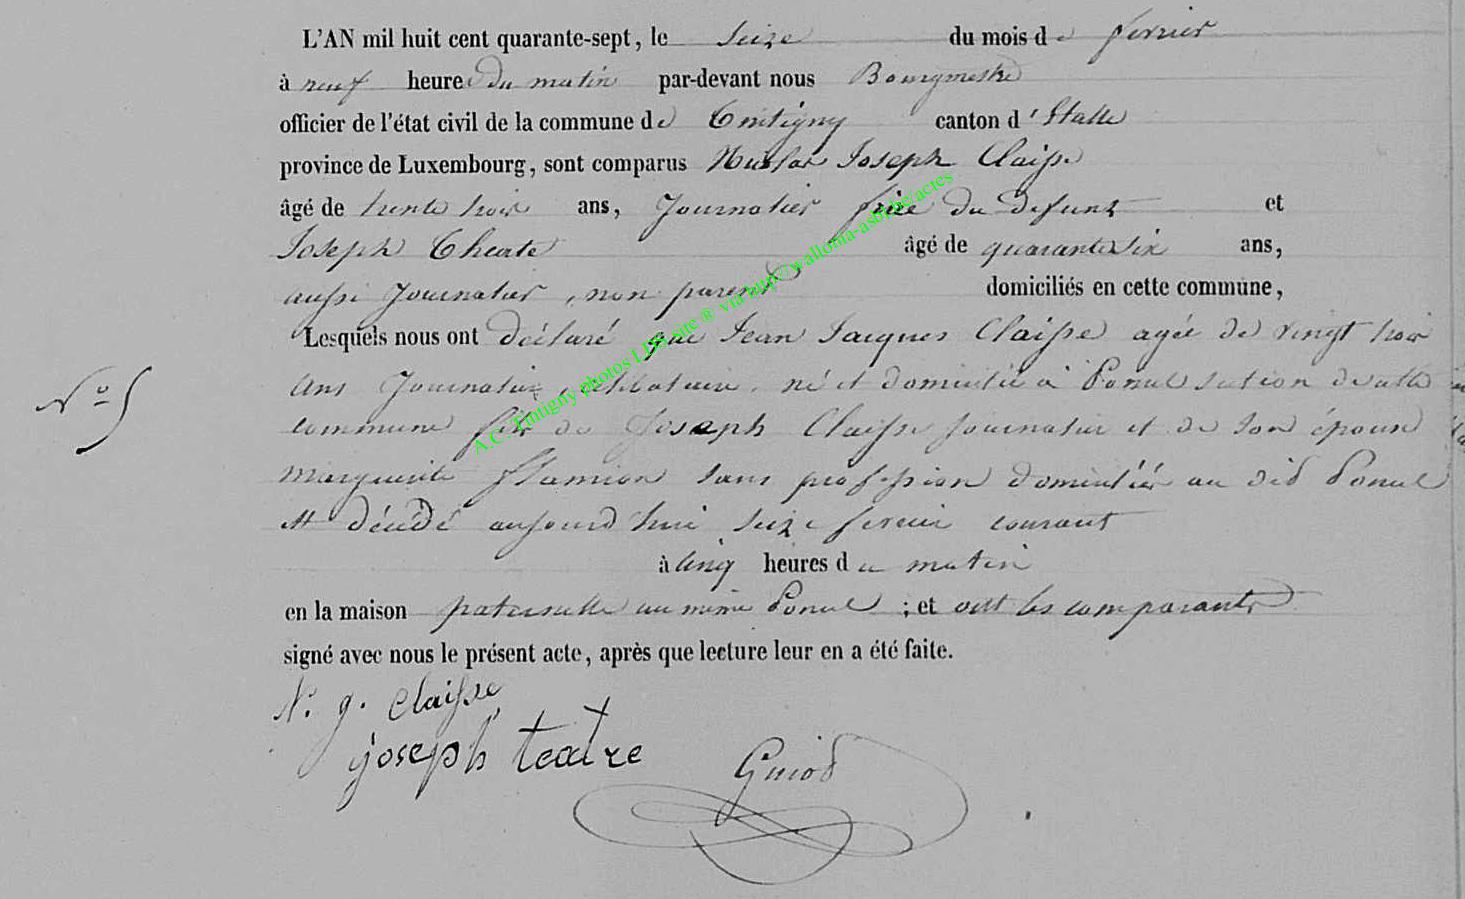 L'AN mil huit cent quarante-sept, le seize du mois de fevrier
à neuf heures du matin par-devant nous Bourgmestre
officier de l'état civil de la commune de Tintigny canton d'Etalle
province de Luxembourg, sont comparus Nicolas Joseph Claisse
âgé de trente trois ans, Journalier frère du defunt et
Joseph Theatre âgé de quarante six ans,
aussi Journalier, non parent domiciliés en cette commune,
Lesquels nous ont déclaré que Jean Jacques Claisse agée de vingt trois
ans Journalier, célibataire, né et domicilié à Poncel section de cette
N° 5
commune fils de Joseph Claisse journalier et de son épouse
Marguerite Flamion sans profession domiciliés au dit Poncel
est décédé aujourd'hui seize fevrier courant
à cinq heures du matin
en la maison paternelle au même Poncel ; et ont les comparants
signé avec nous le présent acte, après que lecture leur en a été faite.
N. j. Claisse
joseph teatre
Guiot
A.C. Tintigny photos LDS site ® via http://wallonia-asbl.be/actes